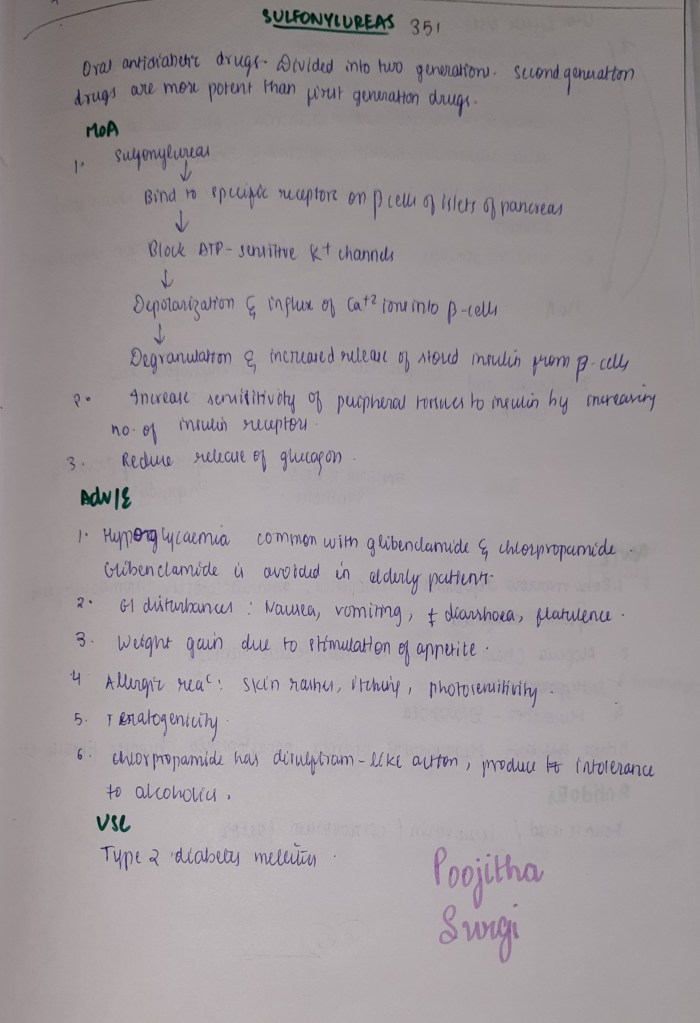 SULFONYLUREAS 351
Oral antidiabetic drugs. Divided into two generations. Second generation
drugs are more potent than first generation drugs.
MOA
1. Sulfonylureas
↓
Bind to specific receptors on β cells of islets of pancreas
↓
Block ATP-sensitive K+ channels
↓
Depolarization & influx of Ca+2 ions into β-cells
↓
Degranulation & increased release of stored insulin from β-cells
2. Increase sensitivity of peripheral tissues to insulin by increasing
no. of insulin receptors.
3. Reduce release of glucagon.
Adv/E
1. Hypoglycaemia common with glibenclamide & chlorpropamide.
Glibenclamide is avoided in elderly patients.
2. GI disturbances : Nausea, vomiting, diarrhoea, flatulence.
3. Weight gain due to stimulation of appetite.
4 Allergic reac : skin rashes, itching, photosensitivity
5. Teratogenicity.
6. chlorpropamide has disulfiram-like action, produce intolerance
to alcoholics.
USE
Type 2 diabetes mellitus.
Poojitha
Surgi